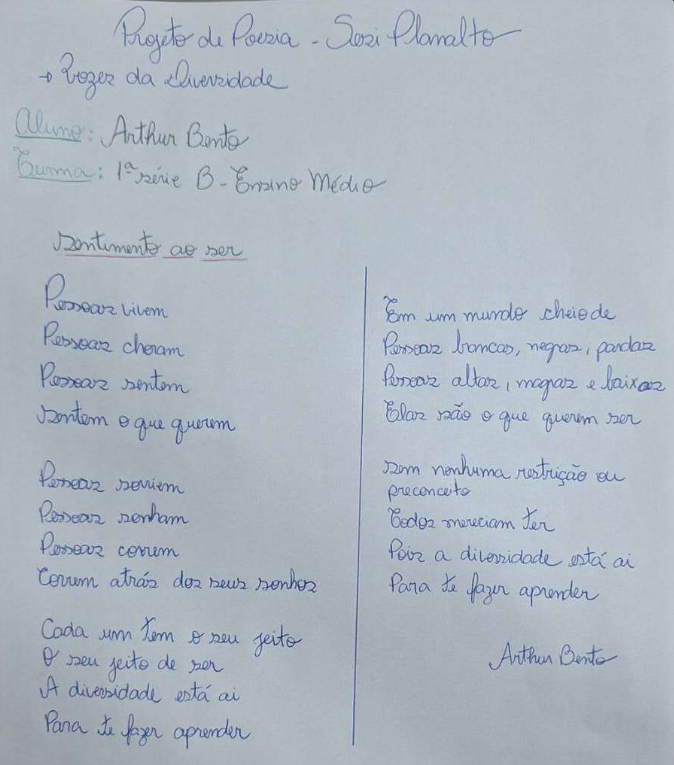 Projeto de Poesia - Sesi Planalto
→ Vozes da diversidade
Aluno: Arthur Bento
Turma: 1ª série B - Ensino Médio
sentimento ao ser
Pessoas vivem
Pessoas choram
Pessoas sentem
sentem o que querem
Pessoas sorriem
Pessoas sonham
Pessoas correm
Correm atrás dos seus sonhos
Cada um tem o seu jeito
O seu jeito de ser
A diversidade está ai
Para te fazer aprender
Em um mundo cheio de
Pessoas brancas, negras, pardas
Pessoas altas, magras e baixas
Elas são o que querem ser
sem nenhuma restrição ou
preconceito
Todos mereciam ter
Pois a diversidade está ai
Para te fazer aprender
Arthur Bento